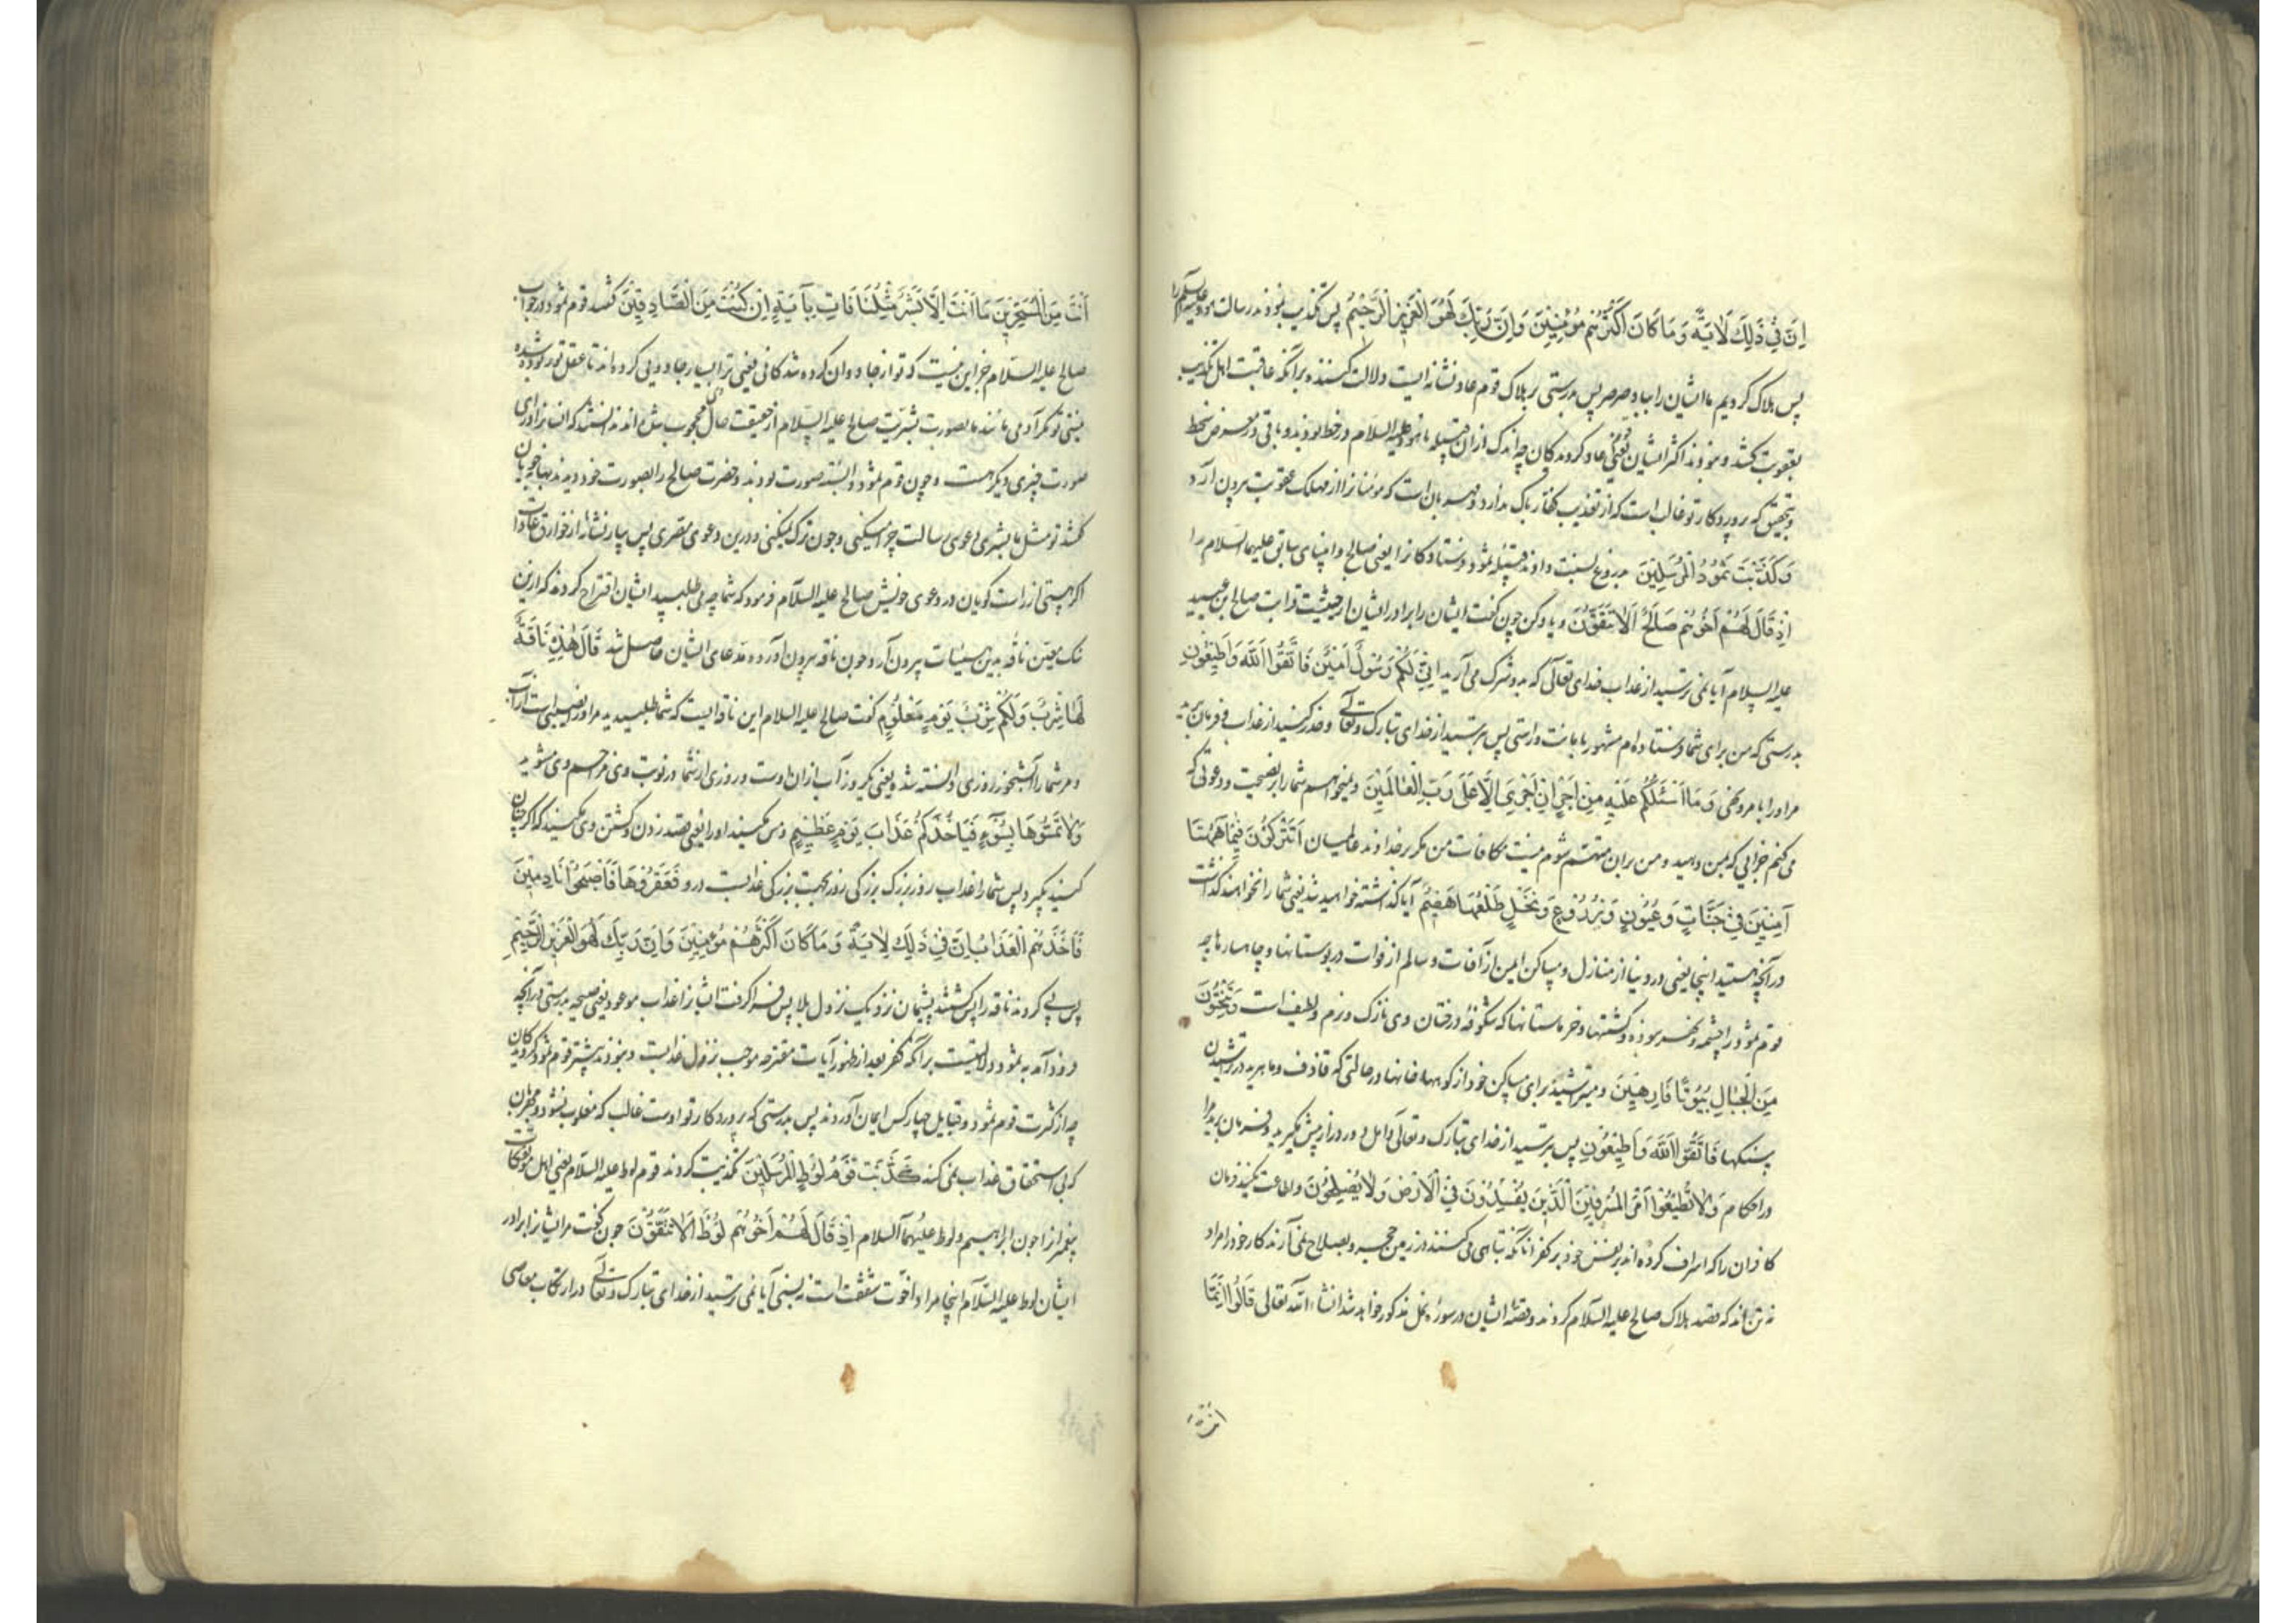 اِنَّ فِی ذَلِكَ لَاٰیَةً وَمَا كَانَ اَكْثَرُهُمْ مُؤْمِنِینَ وَاِنَّ رَبَّكَ لَهُوَ الْعَزِیزُ الرَّحِیْمُ پس تکذیب نمودند رسالت هود علیه السلام را
پس هلاک کردیم ما ایشان را بباد صرصر پس بدرستی در هلاک قوم عاد نشانه ایست دلالت کننده برآنکه عاقبت اهل تکذیب
بعقوبت کشد و نبودند اکثر ایشان یعنی عاد گروندگان چه اندک ازان قبیله با هود علیه السلام در خط بودند و باقی در معرض سخط
و بتحقیق که پروردکار تو غالب است که از تعذیب کفار باک ندارد و مهربان است که مومنانرا از مهلک عقوبت بیرون آرد
كَذَّبَتْ ثَمُوْدُ الْمُرْسَلِیْنَ بدروغ نسبت دادند قبیله ثمود فرستادگانرا یعنی صالح و انبیای سابق علیهم السلام را
اِذْ قَالَ لَهُمْ اَخُوْهُمْ صَالِحٌ اَلَا تَتَّقُوْنَ و یاد کن چون گفت ایشان را برادر ایشان از حیثیت قرابت صالح ابن عبید
علیه السلام آیا نمی ترسید از عذاب خدای تعالی که بدو شرک می آرید اِنِّی لَكُمْ رَسُوْلٌ اَمِیْنٌ فَاتَّقُوا اللّٰهَ وَاَطِیْعُوْنِ
بدرستی که من برای شما فرستاده ام مشهور بامانت و راستی پس بترسید از خدای تبارک و تعالی و حذر کنید از عذاب و فرمان برید
مرا در امر و نهی وَمَا اَسْئَلُكُمْ عَلَیْهِ مِنْ اَجْرٍ اِنْ اَجْرِیَ اِلَّا عَلَی رَبِّ الْعَالَمِیْنَ و نمیخواهم شما را بر نصیحت و دعوتی که
می کنم جزایی که بمن دهید و من بران متهم شوم نیست مکافات من مگر بر خداوند عالمیان اَتُتْرَكُوْنَ فِیْمَا هٰهُنَا
آمِنِیْنَ فِیْ جَنَّاتٍ وَعُیُوْنٍ وَزُرُوْعٍ وَنَخْلٍ طَلْعُهَا هَضِیْمٌ آیا گذاشته خواهید شد یعنی شما را نخواهند گذاشت
در آنچه هستید اینجا یعنی در دنیا از منازل و مساکن ایمن از آفات و سالم از فوات در بوستانها و چاهسارها چه
قوم ثمود را چشمه و نهر نبوده و کشتها و خرماستانها که شکوفه درختان وی نازک و نرم و لطیف است وَتَنْحِتُوْنَ
مِنَ الْجِبَالِ بُیُوْتًا فَارِهِیْنَ و میتراشید برای مساکن خود از کوهها خانها در حالتی که حاذق و ماهرید در تراشیدن
سنگها فَاتَّقُوا اللّٰهَ وَاَطِیْعُوْنِ پس بترسید از خدای تبارک و تعالی و امل دور و دراز پیش مگیرید و فرمان برید مرا
در احکام وَلَا تُطِیْعُوْا اَمْرَ الْمُسْرِفِیْنَ الَّذِیْنَ یُفْسِدُوْنَ فِی الْاَرْضِ وَلَا یُصْلِحُوْنَ و اطاعت مکنید فرمان
کافران را که اسراف کرده اند بر نفس خود بر کفر آنانکه تباهی می کنند در زمین حجر و بصلاح نمی آرند کار خود را مراد
نه تن اند که قصد هلاک صالح علیه السلام کردند و قصه ایشان در سوره نمل مذکور خواهد شد انشاء الله تعالی قَالُوْا اِنَّمَا
انت
اَنْتَ مِنَ الْمُسَحَّرِیْنَ مَا اَنْتَ اِلَّا بَشَرٌ مِثْلُنَا فَاْتِ بِآیَةٍ اِنْ كُنْتَ مِنَ الصَّادِقِیْنَ گفتند قوم ثمود در جواب
صالح علیه السلام جز این نیست که تو از جادوان کرده شدگانی یعنی ترا بسیار جادویی کرده اند تا عقل تو ربوده شده
نیستی تو مگر آدمی مانند ما بصورت بشریت صالح علیه السلام از حقیقت حال محجوب شده اند ندانستند که انسان ورای
صورت چیزی دیگر هست و چون قوم ثمود وابسته صورت بودند و حضرت صالح را بصورت خود دیدند
گفتند تو مثل ما بشری دعوی رسالت چرا میکنی و چون ترک نمیکنی و درین دعوی مصری پس بیار نشانه از خوارق عادات
اگر هستی از راست گویان در دعوی خویش صالح علیه السلام فرمود که شما چه می طلبید ایشان اقتراح کردند که ازین
سنک معین ناقه بدین هیئات بیرون آر و چون ناقه بیرون آورد و مدعای ایشان حاصل شد قَالَ هٰذِهِ نَاقَةٌ
لَهَا شِرْبٌ وَلَكُمْ شِرْبُ یَوْمٍ مَعْلُوْمٍ گفت صالح علیه السلام این ناقه ایست که شما طلبیدید مر او را نصیبی است از آب
و مر شما را آبشخور روزی دانسته شد یعنی یکروز آب ازان اوست و روزی از شما در نوبت وی مزاحم وی مشوید
وَلَا تَمَسُّوْهَا بِسُوْءٍ فَیَاْخُذَكُمْ عَذَابُ یَوْمٍ عَظِیْمٍ و مس مکنید او را یعنی قصد زدن و کشتن وی مکنید که اگر چنان
کنید بگیرد پس شما را عذاب روز بزرگ بزرگی روز بجهت بزرگی عذابست درو فَعَقَرُوْهَا فَاَصْبَحُوْا نَادِمِیْنَ
فَاَخَذَهُمُ الْعَذَابُ اِنَّ فِی ذَلِكَ لَاٰیَةً وَمَا كَانَ اَكْثَرُهُمْ مُؤْمِنِیْنَ وَاِنَّ رَبَّكَ لَهُوَ الْعَزِیْزُ الرَّحِیْمُ
پس پی کردند ناقه را پس گشتند پشیمان نزدیک نزول بلا پس فرا گرفت ایشانرا عذاب موعود یعنی صیحه بدرستی در آنچه
فرود آمد به ثمود دلالتیست برآنکه کفر بعد از ظهور آیات مقترحه موجب نزول عذابست و نبودند بیشتر قوم ثمود گروندگان
چه از کثرت قوم ثمود و قبایل چهار کس ایمان آوردند پس بدرستی که پروردکار تو اوست غالب که مغلوب نشود و مهربان
که بی استحقاق عذاب نمی کند كَذَّبَتْ قَوْمُ لُوْطٍ الْمُرْسَلِیْنَ تکذیب کردند قوم لوط علیه السلام یعنی اهل موتفکات
پیغمبرانرا چون ابراهیم و لوط علیهما السلام اِذْ قَالَ لَهُمْ اَخُوْهُمْ لُوْطٌ اَلَا تَتَّقُوْنَ چون گفت مر ایشانرا برادر
ایشان لوط علیه السلام اینجا مراد اخوت شفقت است نه نسبی آیا نمی ترسید از خدای تبارک و تعالی در ارتکاب معاصی